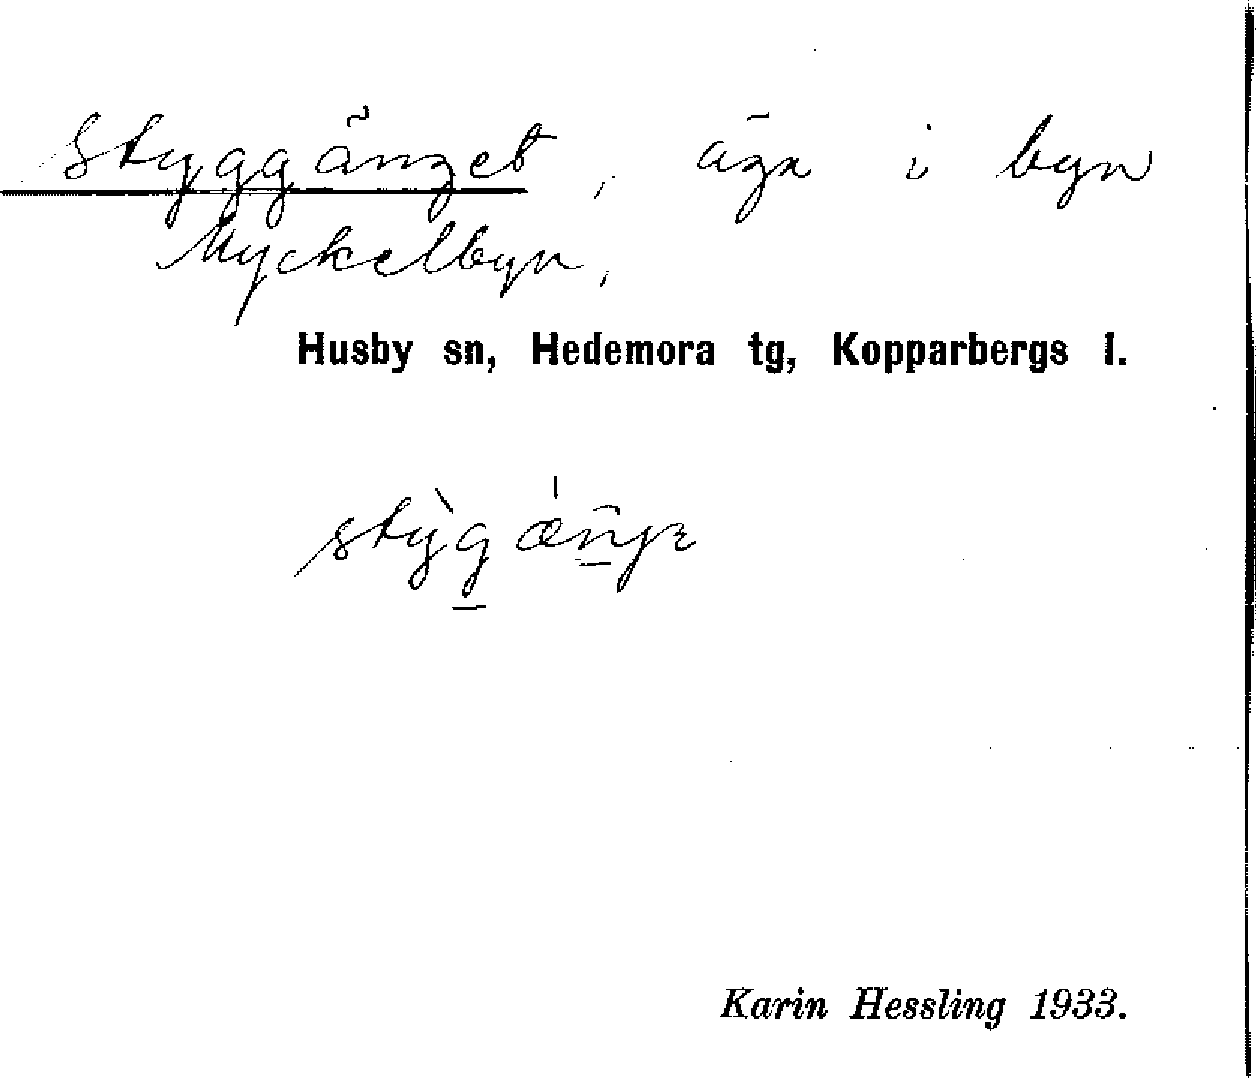 Styggänget, äga i byn
Myckelbyn,
Husby sn, Hedemora tg, Kopparbergs l.
Karin Hessling 1933.